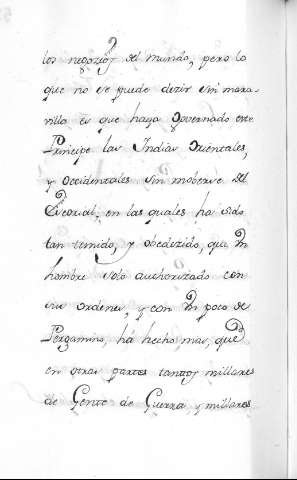 los negozios del mundo, pero lo
que no se puede dezir sin mara-
villa es que haya governado este
Principe las Indias Orientales,
y Occidentales sin moberse del
Escorial, en las quales ha sido
tan temido, y obedezido, que un
hombre solo authorizado con
sus ordenes, y con un poco de
Pergamino, há hecho mas, que
en otras partes tantos millares
de Gente de Guerra, y millares